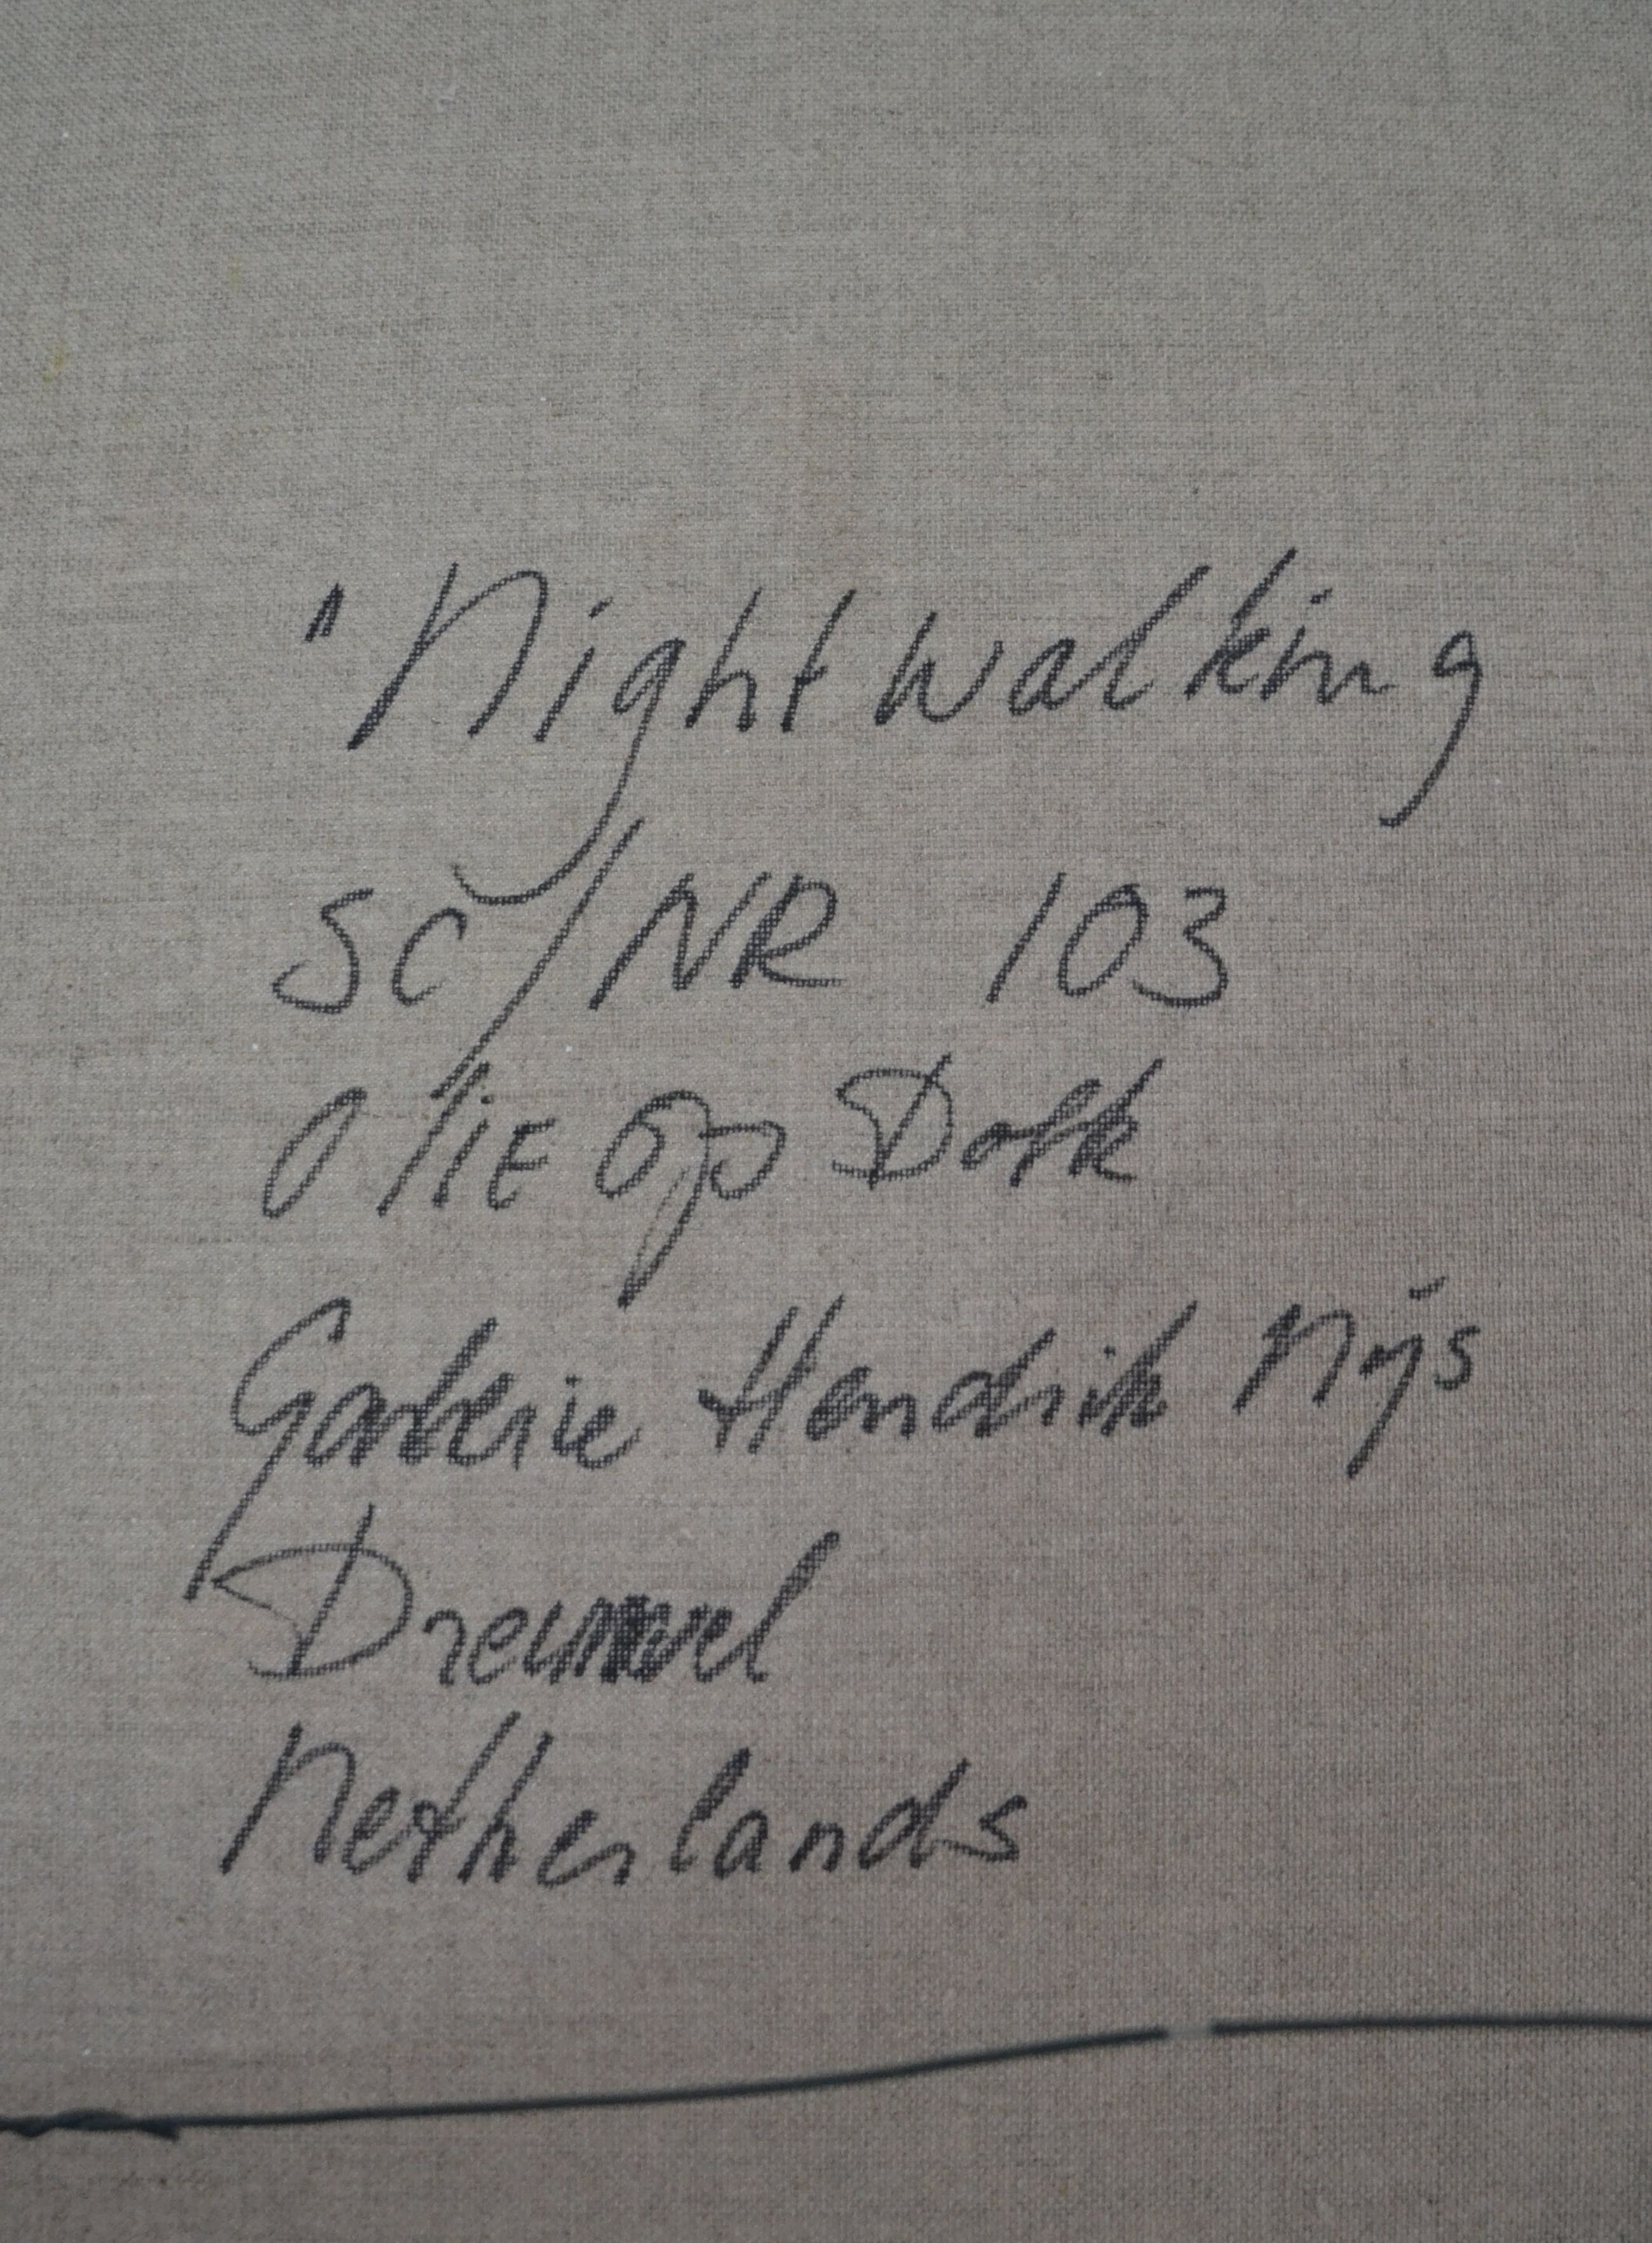 "Nightwalking
SC/NR 103
OliE op Doek
Galerie Hendrik Nijs
Dreumel
Netherlands